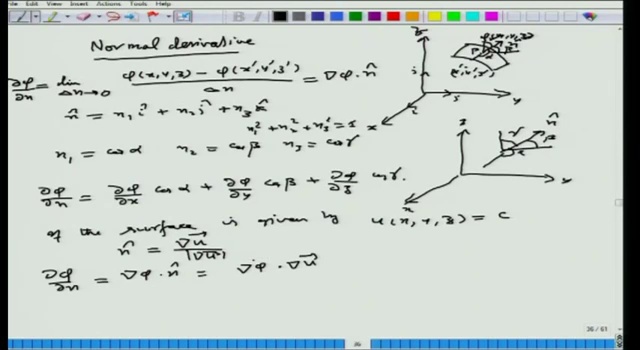 File Edit View Insert Actions Tools Help
Normal derivative
∂φ/∂n = lim Δn→0 φ(x,y,z) − φ(x',y',z') / Δn = ∇φ·n̂
n̂ = n₁ î + n₂ ĵ + n₃ k̂
n₁² + n₂² + n₃² = 1
n₁ = cosα n₂ = cosβ n₃ = cosγ
∂φ/∂n = ∂φ/∂x cosα + ∂φ/∂y cosβ + ∂φ/∂z cosγ.
of the surface is given by u(x,y,z) = c
n̂ = ∇u/|∇u|
∂φ/∂n = ∇φ·n̂ = ∇φ·∇u
z
y
x
z
n̂
γ
β
α
y
x
36 / 61
36